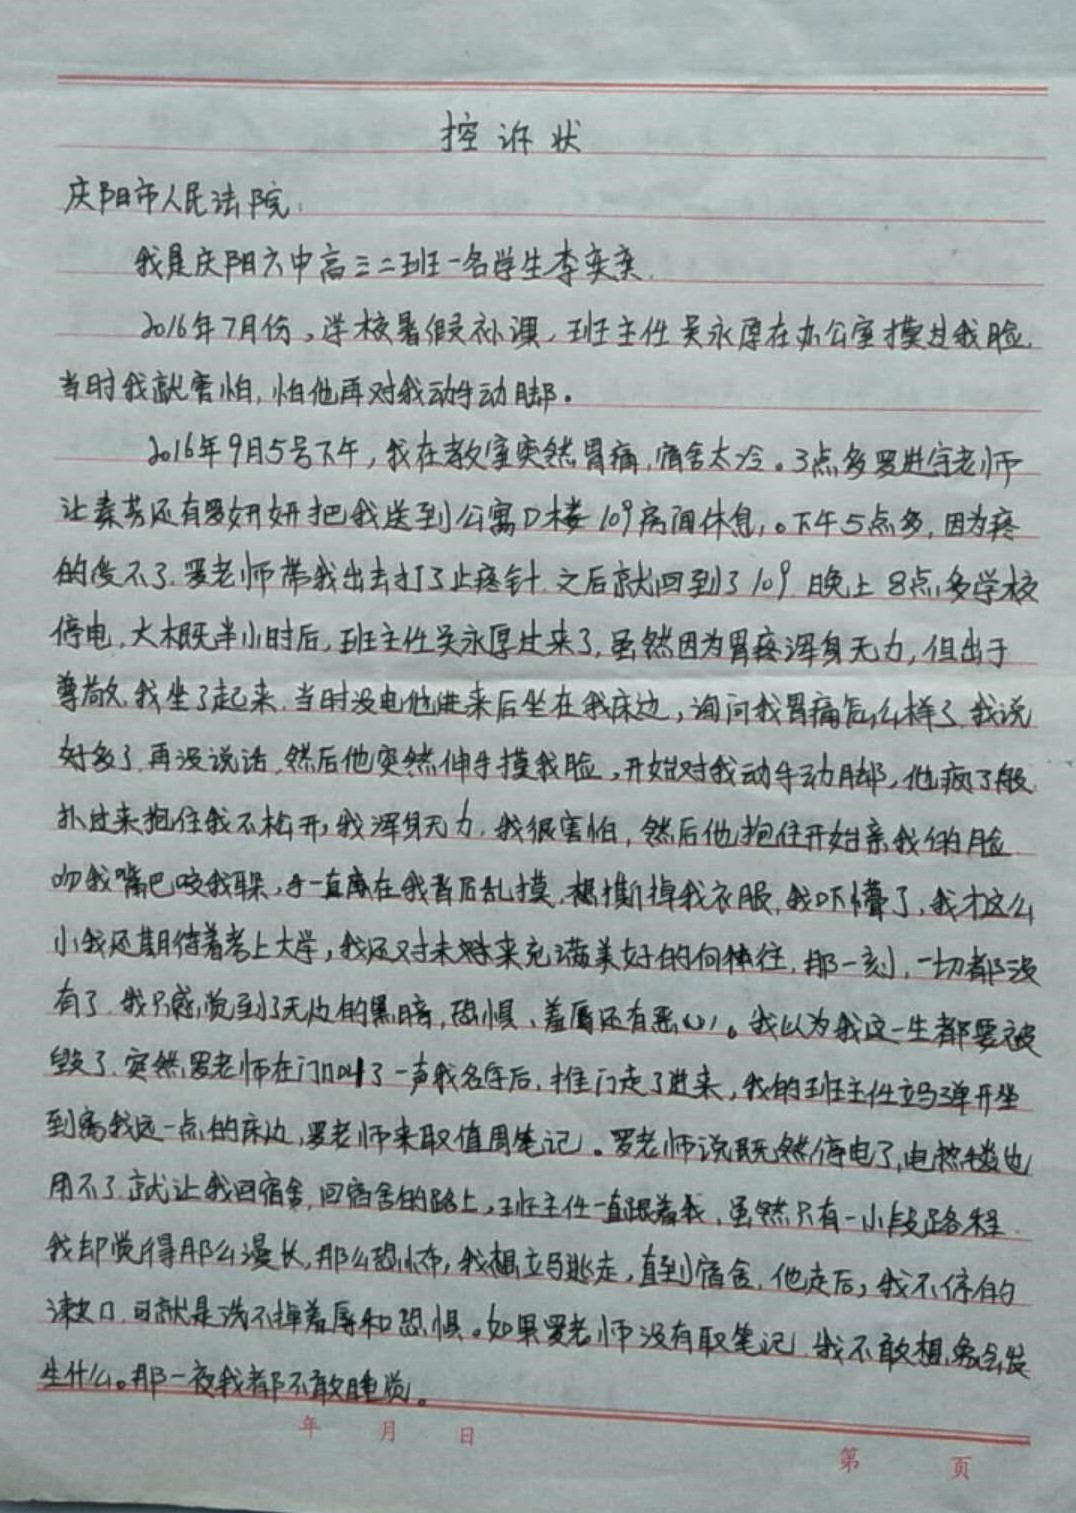 控诉状
庆阳市人民法院：
我是庆阳六中高三二班一名学生李奕奕.
2016年7月份，学校暑假补课，班主任吴永厚在办公室摸过我脸，
当时我就害怕，怕他再对我动手动脚。
2016年9月5号下午，我在教室突然胃痛，宿舍太冷。3点多罗进宇老师
让秦芳还有罗妍妍把我送到公寓D楼109房间休息，。下午5点多，因为疼
的受不了.罗老师带我出去打了止疼针.之后就回到了109.晚上8点多学校
停电，大概半小时后，班主任吴永厚过来了，虽然因为胃疼浑身无力，但出于
尊敬，我坐了起来.当时没电他进来后坐在我床边，询问我胃痛怎么样了.我说
好多了.再没说话.然后他突然伸手摸我脸，开始对我动手动脚，他疯了般
扑过来抱住我不松开，我浑身无力.我很害怕，然后他抱住开始亲我的脸
吻我嘴巴咬我耳朵，手一直在我背后乱摸，想撕掉我衣服，我吓懵了，我才这么
小我还期待着考上大学，我还对未来充满美好的向往，那一刻，一切都没
有了.我只感觉到了无边的黑暗，恐惧、羞辱还有恶心。我以为我这一生都要被
毁了.突然罗老师在门口叫了一声我名字后，推门走了进来，我的班主任立马弹开坐
到离我远一点的床边，罗老师来取值周笔记。罗老师说既然停电了，电热毯也
用不了.就让我回宿舍，回宿舍的路上，班主任一直跟着我，虽然只有一小段路程.
我却觉得那么漫长，那么恐怖，我想立马逃走，直到宿舍.他走后，我不停的
漱口.可就是洗不掉羞辱和恐惧。如果罗老师没有取笔记.我不敢想象会发
生什么。那一夜我都不敢睡觉。
年 月 日
第 页